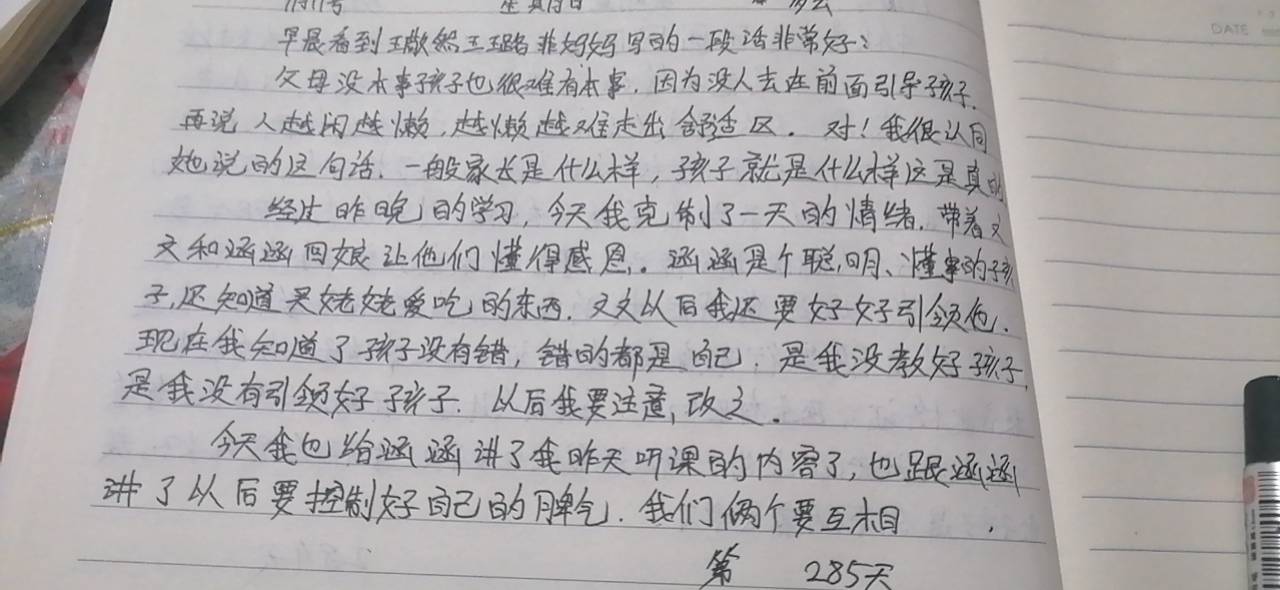 星期日
早晨看到王歆然王璐菲妈妈写的一段话非常好：
父母没本事孩子也很难有本事．因为没人去在前面引导孩子．
再说人越闲越懒，越懒越难走出舒适区．对！我很认同
她说的这句话．一般家长是什么样，孩子就是什么样这是真的
经过昨晚的学习，今天我克制了一天的情绪．带着文
文和涵涵回娘让他们懂得感恩．涵涵是个聪明、懂事的孩
子，还知道买姥姥爱吃的东西．文文以后我还要好好引领他．
现在我知道了孩子没有错，错的都是自己．是我没教好孩子，
是我没有引领好孩子．以后我要注意，改之．
今天我也给涵涵讲了我昨天听课的内容了，也跟涵涵
讲了以后要控制好自己的脾气．我们俩个要互相．
第 285天
DATE